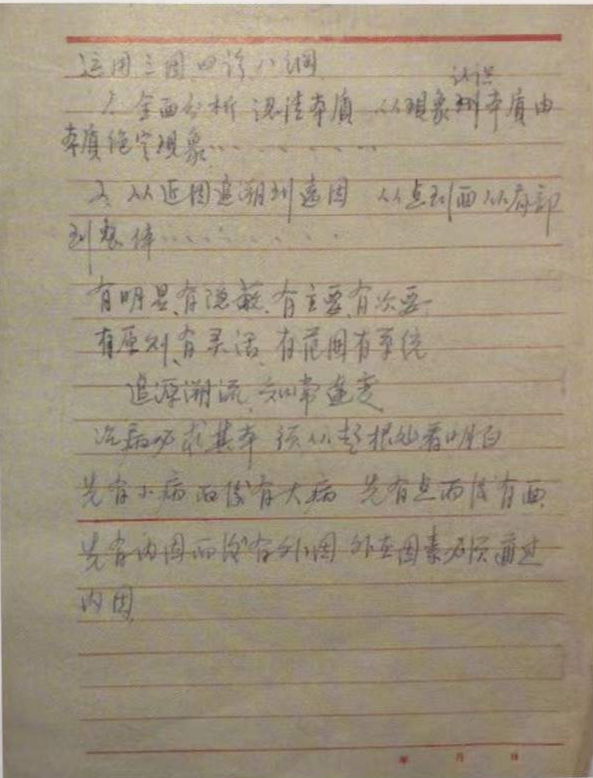 运用三因四诊八纲
认识
1. 全面分析 认清本质 从现象到本质由
本质绝定现象……
2、从近因追溯到远因 从点到面从局部
到整体……
有明显、有隐蔽、有主要、有次要
有原则、有灵活、有范围有系统
追源溯流、知常达变
治病必求其本 须从起根处看明白
先有小病而后有大病 先有点而后有面
先有内因而后有外因 外在因素必须通过
内因
年 月 日